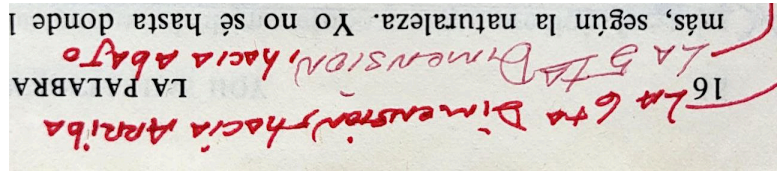 LA 6ta DIMENSIÓN, hacia ARRIBA
16 LA PALABRA
LA 5TA DIMENSIÓN, hacia ABAJO
más, según la naturaleza. Yo no sé hasta donde l